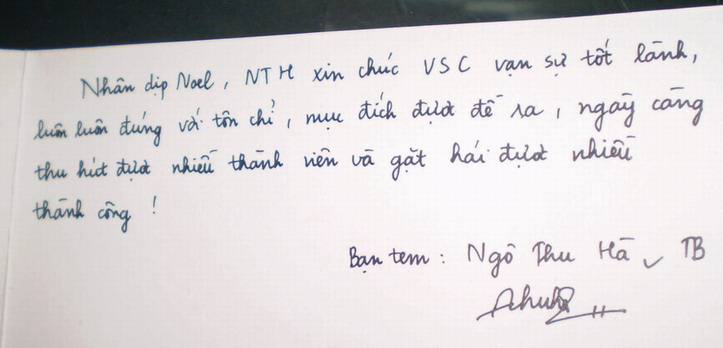 Nhân dịp Noel, NTH xin chúc VSC vạn sự tốt lành,
luôn luôn đúng với tôn chỉ, mục đích được đề ra, ngày càng
thu hút được nhiều thành viên và gặt hái được nhiều
thành công !
Bạn tem : Ngô Thu Hà TB